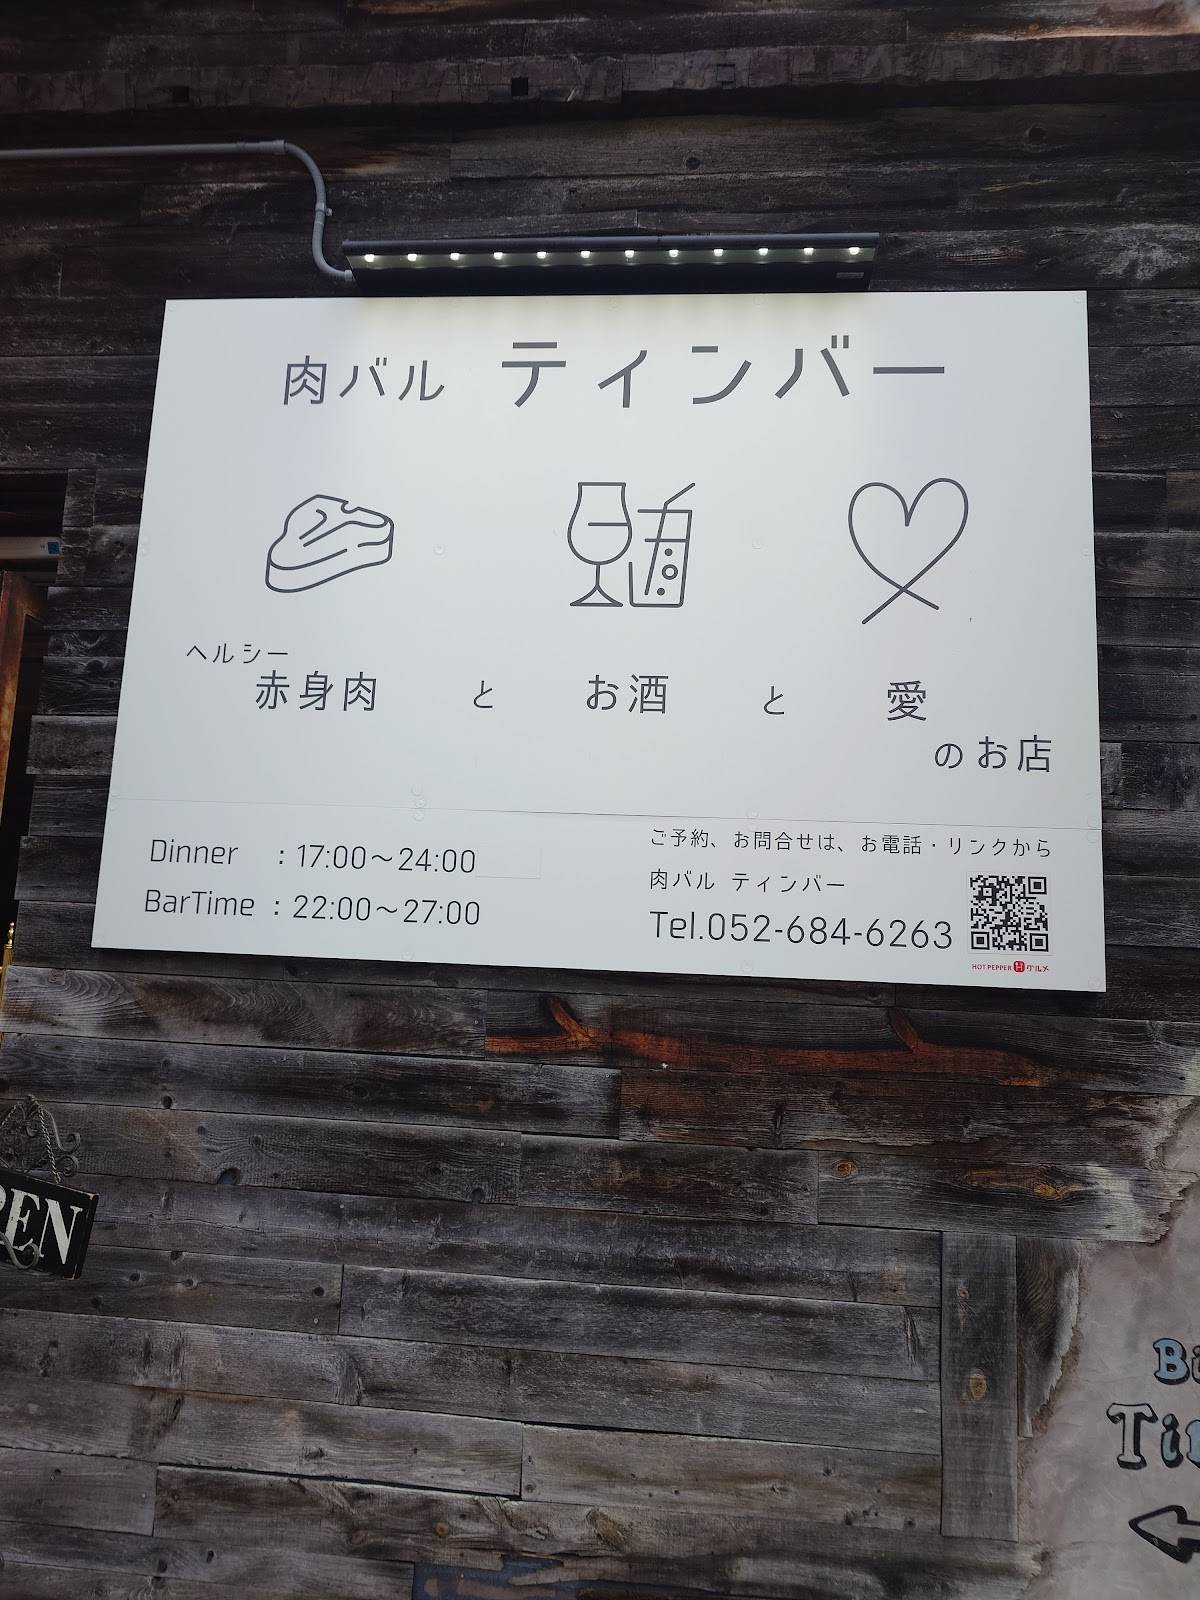 肉バル ティンバー
ヘルシー
赤身肉 と お酒 と 愛
のお店
Dinner : 17:00～24:00
BarTime : 22:00～27:00
ご予約、お問合せは、お電話・リンクから
肉バル ティンバー
Tel.052-684-6263
HOT PEPPER グルメ